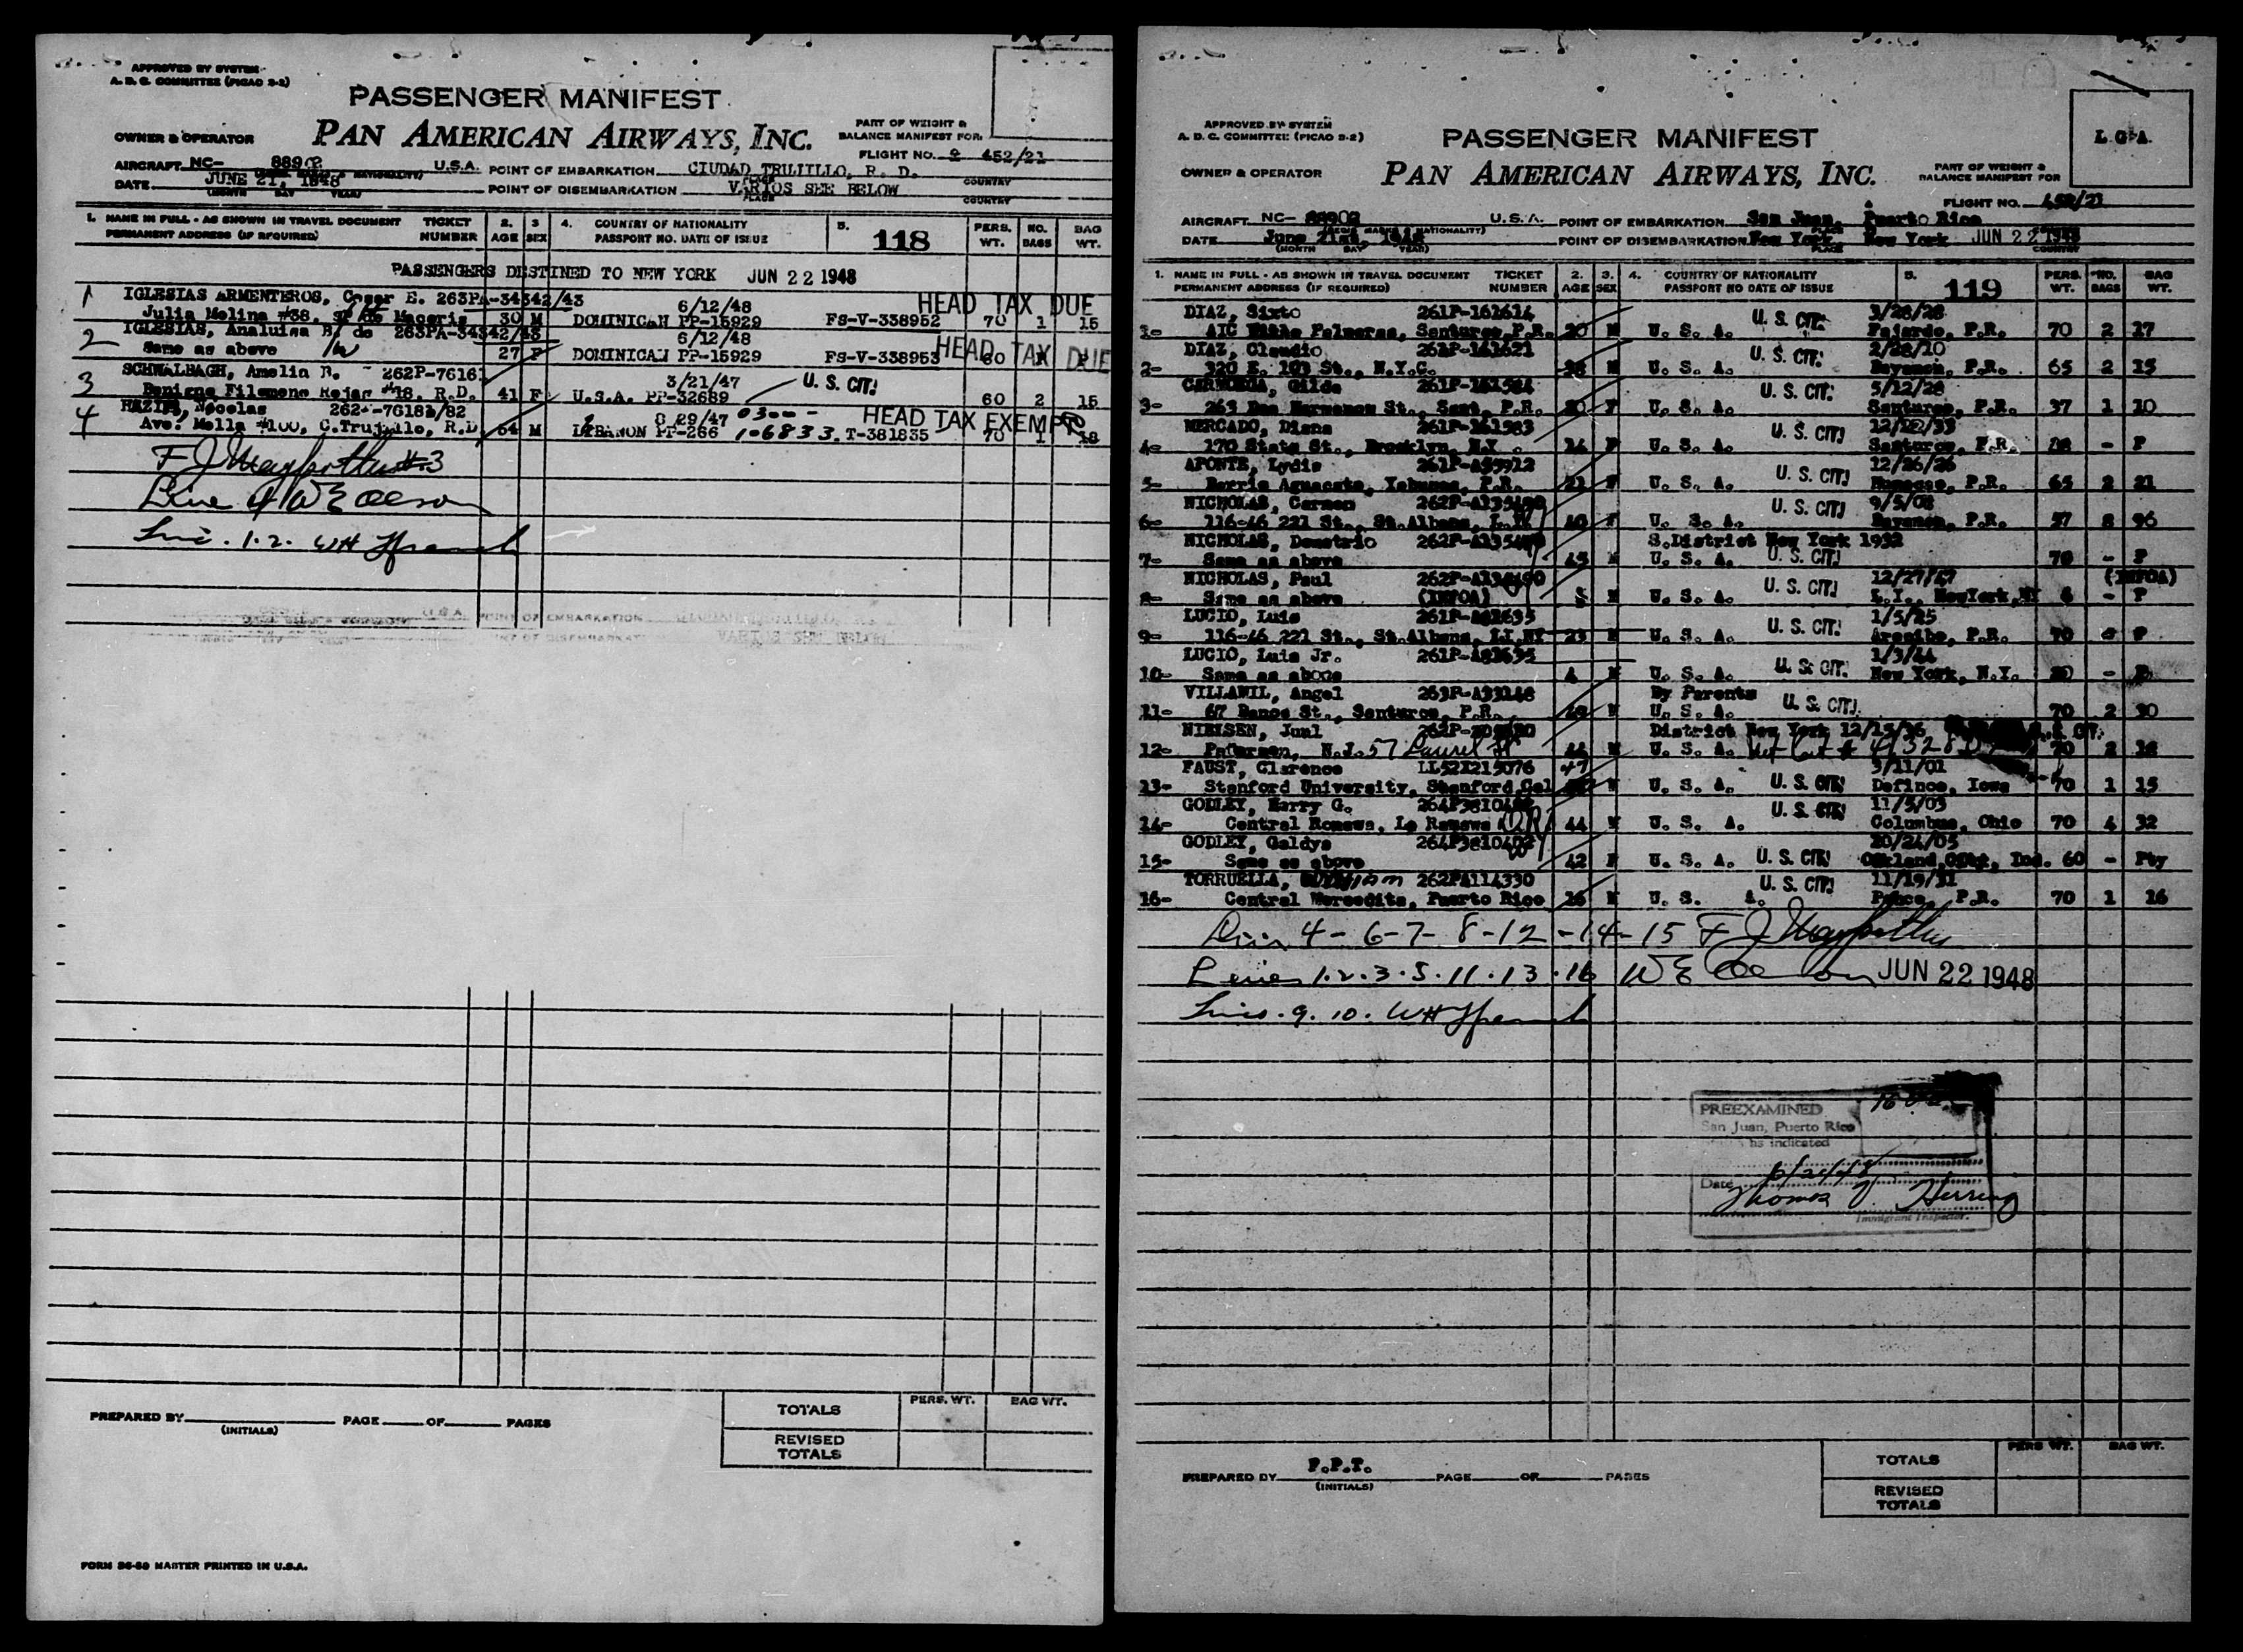 APPROVED BY SYSTEM
A. D. C. COMMITTEE (PICAO 2-2)
PASSENGER MANIFEST
OWNER & OPERATOR PAN AMERICAN AIRWAYS, INC. PART OF WEIGHT & BALANCE MANIFEST FOR
FLIGHT NO. 452/21
AIRCRAFT NC- 88902 U.S.A. POINT OF EMBARKATION CIUDAD TRUJILLO, R. D.
DATE JUNE 21, 1948 POINT OF DISEMBARKATION VARIOS SEE BELOW
(MONTH DAY YEAR) PLACE COUNTRY
1. NAME IN FULL - AS SHOWN IN TRAVEL DOCUMENT TICKET 2. 3 4. COUNTRY OF NATIONALITY 5. 118 PERS. NO. BAG
PERMANENT ADDRESS (IF REQUIRED) NUMBER AGE SEX PASSPORT NO. DATE OF ISSUE WT. BAGS WT.
PASSENGERS DESTINED TO NEW YORK JUN 22 1948
1 IGLESIAS ARMENTEROS, Cesar E. 263PA-34342/43 6/12/48 HEAD TAX DUE
Julia Molina #38, Macoris 30 M DOMINICAN PP-15929 FS-V-338952 70 1 15
2 IGLESIAS, Analuisa B/ de 263PA-34342/43 6/12/48 HEAD TAX DUE
Same as above 27 F DOMINICAN PP-15929 FS-V-338953 60
3 SCHWALBAGH, Amelia R. 262P-76161 3/21/47 U. S. CIT!
Benigno Filomeno Rojas #18, R.D. 41 F U.S.A. PP-32689 60 2 15
4 Nocolas 8/29/47 0300-- HEAD TAX EXEMPT
Ave. Mella #100, C.Trujillo, R.D. 54 M LEBANON PP-266 106833. T-381835 70 1 18
#3
Line 4 W E
1. 2. W H
TOTALS PERS. WT. BAG WT.
PREPARED BY PAGE OF PAGES
(INITIALS)
REVISED TOTALS
FORM 26-60 MASTER PRINTED IN U.S.A.
APPROVED BY SYSTEM
A. D. C. COMMITTEE (PICAO 2-2)
PASSENGER MANIFEST
L.G.A.
OWNER & OPERATOR PAN AMERICAN AIRWAYS, INC. PART OF WEIGHT & BALANCE MANIFEST FOR
FLIGHT NO. 452/21
AIRCRAFT NC- 88902 U.S.A. POINT OF EMBARKATION San Juan, Puerto Rico
DATE June 21st, 1948 POINT OF DISEMBARKATION New York, New York JUN 22 1948
(MONTH DAY YEAR) PLACE COUNTRY
1. NAME IN FULL - AS SHOWN IN TRAVEL DOCUMENT TICKET 2. 3. 4. COUNTRY OF NATIONALITY 5. 119 PERS. NO. BAG
PERMANENT ADDRESS (IF REQUIRED) NUMBER AGE SEX PASSPORT NO DATE OF ISSUE WT. BAGS WT.
DIAZ, Sixto 261P-161614 U. S. CIT! 3/28/28
1- Palmeras, Santurce, P.R. 20 M U. S. A. Fajardo, P.R. 70 2 17
DIAZ, Claudio 261P-161621 U. S. CIT! 2/28/10
2- 320 E. 103 St., N.Y.C. 38 M U. S. A. Bayamon, P.R. 65 2 15
Gilda U. S. CIT! 5/12/28
3- 263 Dos Hermanos St., Sant. P.R. 20 F U. S. A. Santurce, P.R. 37 1 10
MERCADO, Diana 261P-161583 U. S. CIT!
4- 170 State St., Brooklyn, N.Y. 14 F U. S. A. Santurce, P.R. - P
APONTE, Lydia 261P-A59912 U. S. CIT! 12/26/26
5- Barrio Aguacate, Yabucoa, P.R. 21 F U. S. A. Humacao, P.R. 65 2 21
NICHOLAS, Carmen U. S. CIT! 9/5/08
6- 116-46 221 St., St.Albans, L.I. 40 F U. S. A. Bayamon, P.R. 57 8 96
NICHOLAS, Demetrio S.District New York 1932
7- Same as above 45 M U. S. A. U. S. CIT! 70 - P
NICHOLAS, Paul U. S. CIT! 12/27/47 (INFOA)
8- Same as above (INFOA) M U. S. A. L.I., NewYork,NY - P
LUCIO, Luis U. S. CIT! 1/5/25
9- 116-46 221 St., St.Albans, LI.NY 23 M U. S. A. Arecibo, P.R. 70 P
LUCIO, Luis Jr. U. S. CIT! 1/3/44
10- Same as above 4 M U. S. A. New York, N.Y. - P
VILLAMIL, Angel 263P-A33148 By Parents U. S. CIT!
11- 67 Dance St., Santurce, P.R. M U. S. A. 70 2 30
NIELSEN, Juul District New York 12/15/36
12- Paterson, N.J. 57 Laurel St 44 M U. S. A. 70 2 18
FAUST, Clarence LL52I215076 47 3/11/01
13- Stanford University, Stanford,Cal M U. S. A. U. S. CIT! Defince, Iowa 70 1 15
GODLEY, Harry G. U. S. CIT! 11/5/03
14- Central Romana, La Romana (DR) 44 M U. S. A. Columbus, Ohio 70 4 32
GODLEY, Galdys 10/24/05
15- Same as above 42 F U. S. A. U. S. CIT! Oakland City, Ind. 60 - Pty
TORRUELLA, 262PA114330 U. S. CIT! 11/19/31
16- Central Mercedita, Puerto Rico 16 M U. S. A. Ponce, P.R. 70 1 16
4 - 6-7- 8-12 -14-15 F J
Lines 1.2.3.5.11.13.16 W E JUN 22 1948
Lines. 9. 10. W H
PREEXAMINED
San Juan, Puerto Rico
as indicated
Date 6/21/48
Thomas J Herring
Immigrant Inspector.
TOTALS PERS WT. BAG WT.
PREPARED BY P.P.T. PAGE OF PAGES
(INITIALS)
REVISED TOTALS